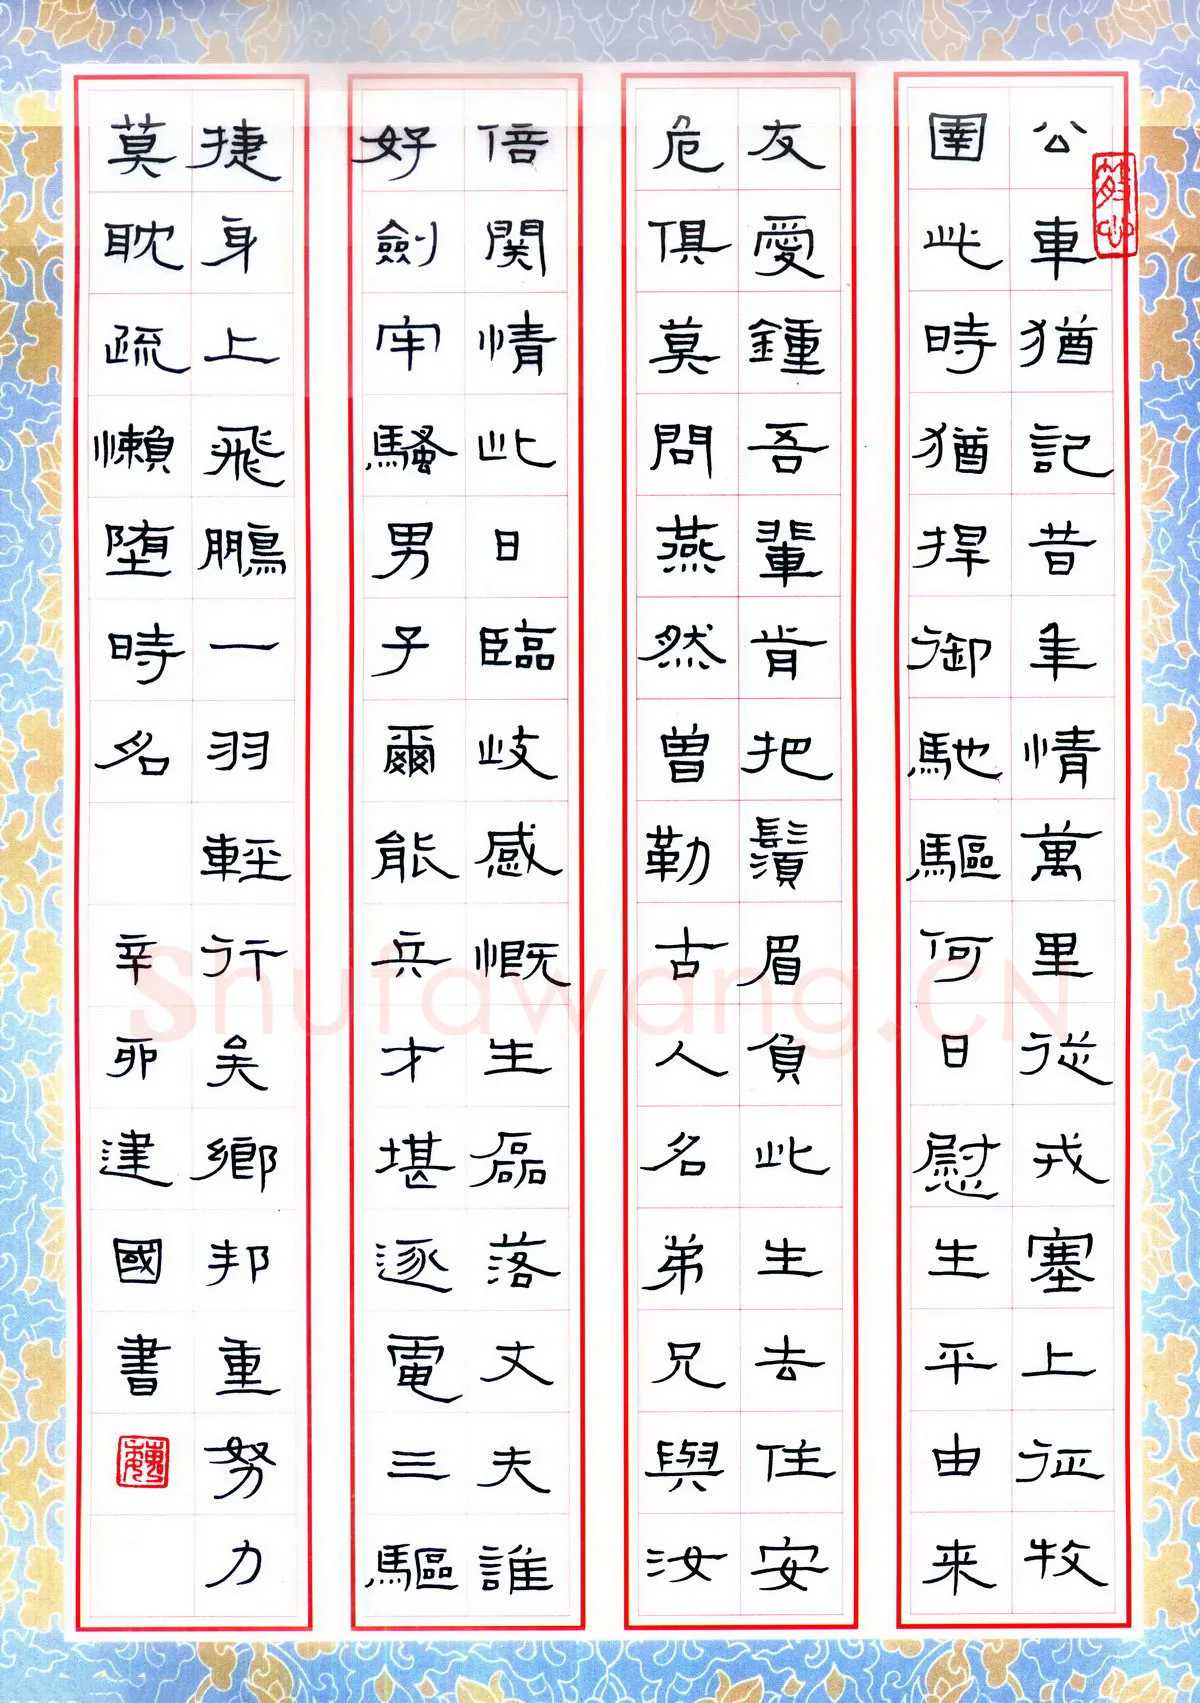 公車猶記昔年情萬里從戎塞上征牧
圉此時猶捍御馳驅何日慰生平由来
友愛鍾吾輩肯把鬚眉負此生去住安
危俱莫問燕然曾勒古人名弟兄與汝
倍関情此日臨歧感慨生磊落丈夫誰
好劍牢騷男子爾能兵才堪逐電三驅
捷身上飛鵬一羽輕行矣鄉邦重努力
莫耽疏懶堕時名 辛卯建國書
Shufawang.CN